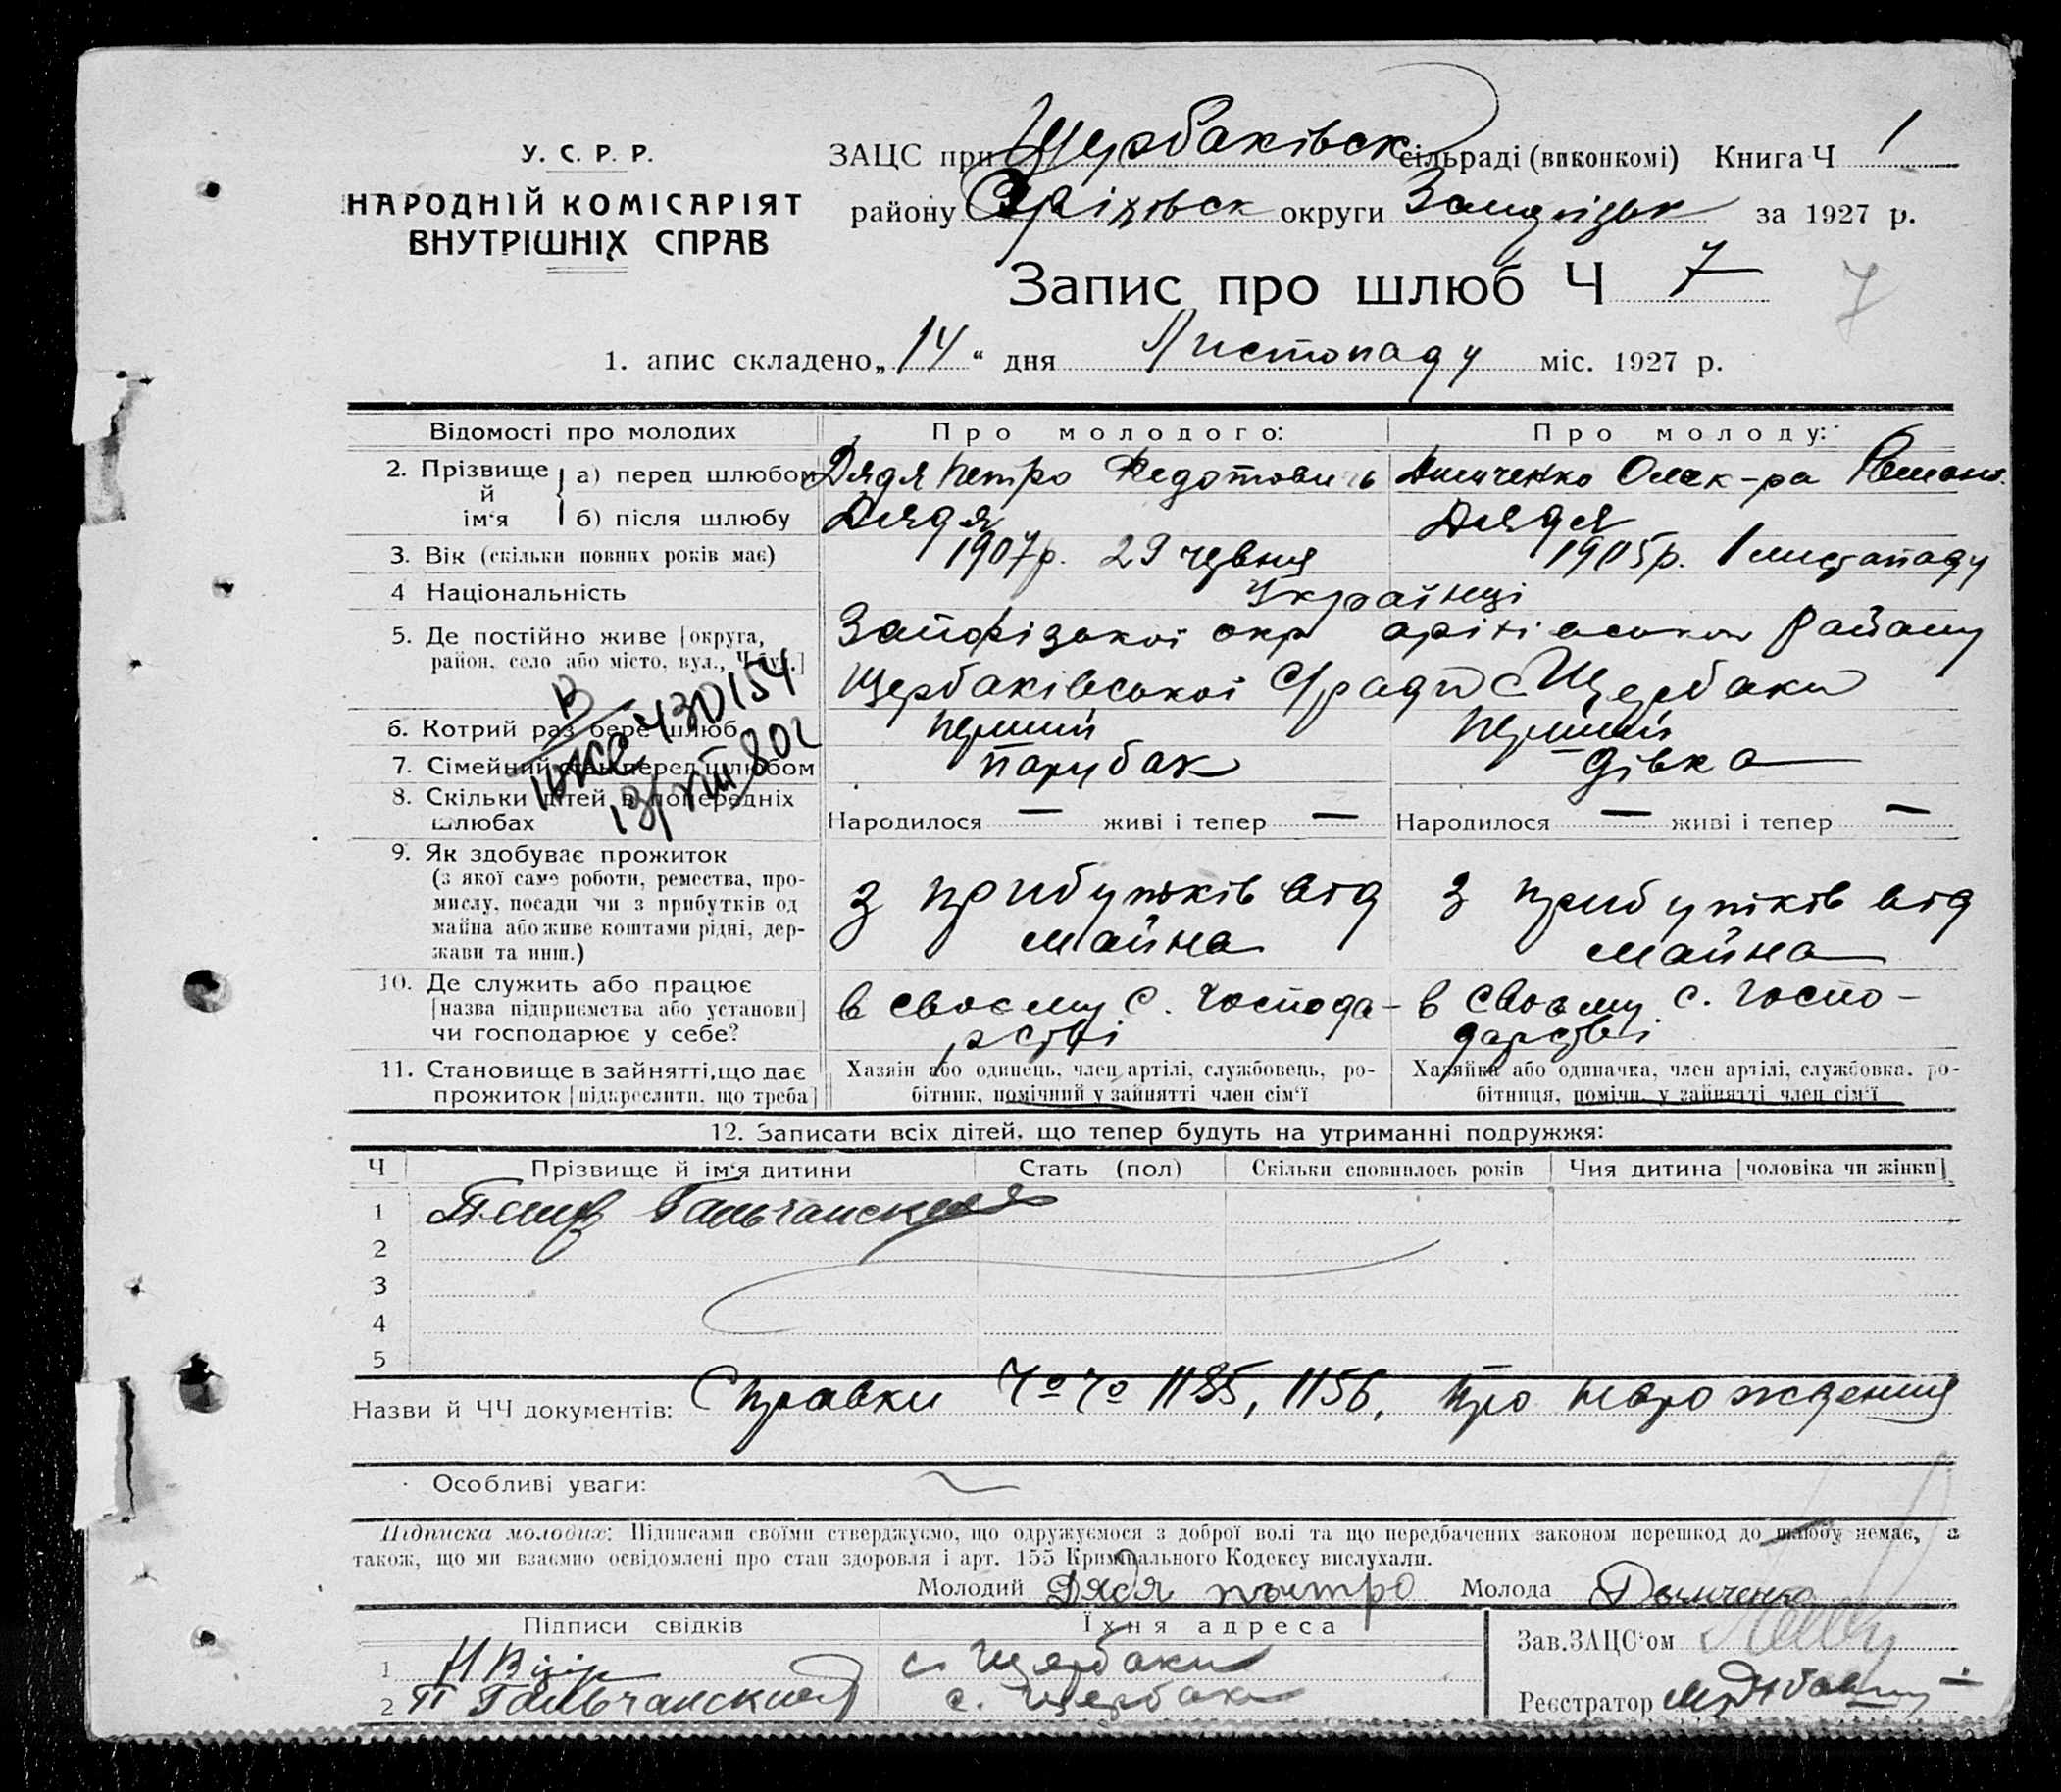 У. С. Р. Р.
НАРОДНІЙ КОМІСАРІЯТ
ВНУТРІШНІХ СПРАВ
ЗАЦС при Щербаківськ сільраді (виконкомі) Книга Ч 1
району Оріхівськ округи Запорізьк за 1927 р.
Запис про шлюб Ч 7
7
1. апис складено „14“ дня Листопаду міс. 1927 р.
Відомості про молодих Про молодого: Про молоду:
2. Прізвище й ім'я а) перед шлюбом Дядя Петро Федотович Олек-ра
б) після шлюбу Дядя Дядя
3. Вік (скільки повних років має) 1907р. 29 червня 1905р. 1 листопаду
4 Національність Українці
5. Де постійно живе [округа, Запорізької окр оріхівського району
район, село або місто, вул., Ч буд.] Щербаківської с/ради с Щербаки
6. Котрий раз бере шлюб перший перший
7. Сімейний стан перед шлюбом парубак дівка
8. Скільки дітей в попередніх
шлюбах Народилося — живі і тепер — Народилося — живі і тепер —
В
430154
802
9. Як здобуває прожиток
(з якої саме роботи, ремества, про-
мислу, посади чи з прибутків од
майна або живе коштами рідні, дер-
жави та инш.)
з прибутків від з прибутків від
майна майна
10. Де служить або працює
[назва підприємства або установи]
чи господарює у себе?
в своєму с. господа- в своєму с. госпо-
рстві дарстві
11. Становище в зайнятті, що дає Хазяін або одинець, член артілі, службовець, ро- Хазяйка або одиначка, член артілі, службовка, ро-
прожиток [підкреслити, що треба] бітник, помічний у зайнятті член сім'ї бітниця, помічн. у зайнятті член сім'ї
12. Записати всіх дітей, що тепер будуть на утриманні подружжя:
Ч Прізвище й ім'я дитини Стать (пол) Скільки сповнилось років Чия дитина [чоловіка чи жінки]
1
2
3
4
5
Назви й ЧЧ документів: Справки 1185, 1156, про нарождения
Особливі уваги:
Підписка молодих: Підписами своїми стверджуємо, що одружуємося з доброї волі та що передбачених законом перешкод до шлюбу немає, а
також, що ми взаємно освідомлені про стан здоровля і арт. 155 Кримінального Кодексу вислухали.
Молодий Дядя Молода
Підписи свідків Їхня адреса Зав.ЗАЦС'ом
1 с. Щербаки
2 П с. Щербаки Реєстратор